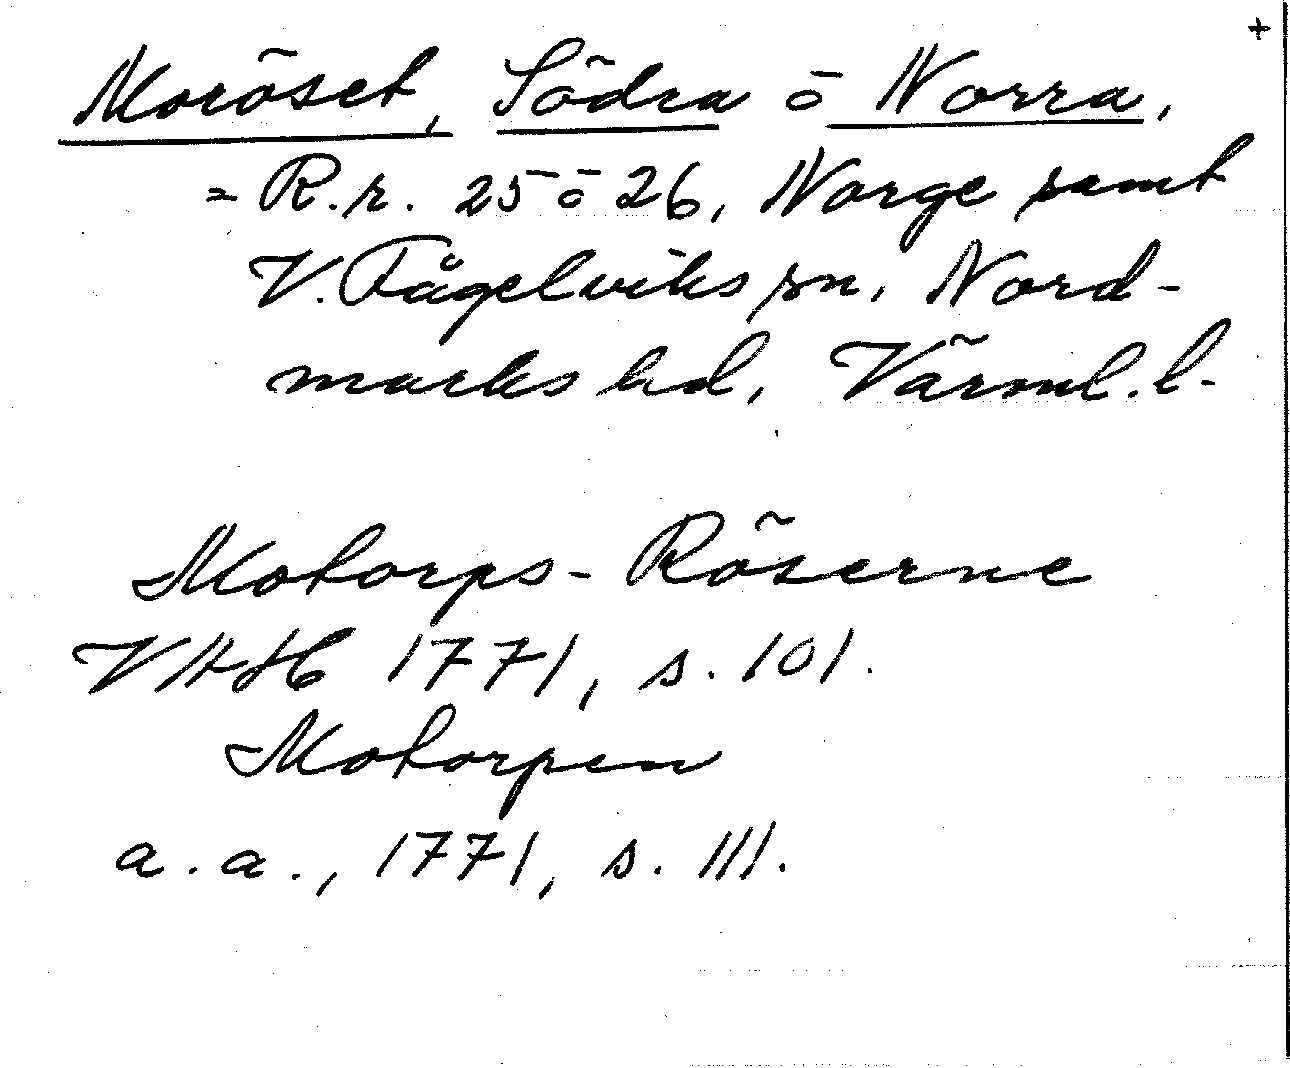 +
Moröset, Södra o Norra,
= R.r. 25 o 26, Norge samt
V. Fågelviks sn, Nord-
marks hd, Värml. l.
Motorps-Röserne
VHAH 1771, s. 101.
Motorpen
a.a., 1771, s. 111.